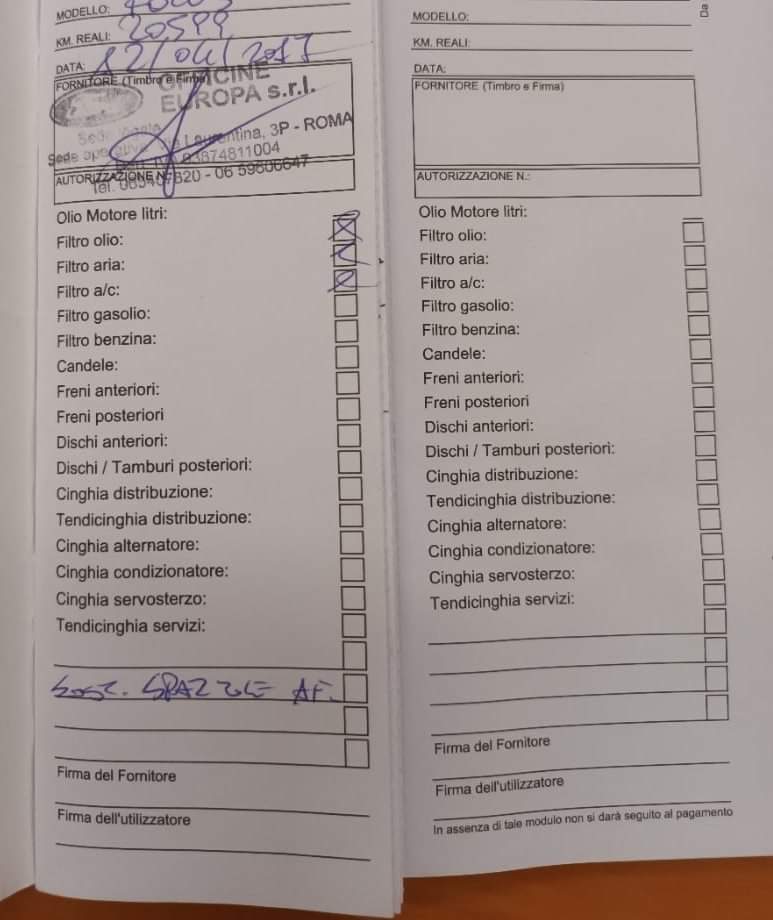 MODELLO:
KM. REALI: 20599
DATA: 12/04/2017
FORNITORE (Timbro e Firma)
OFFICINE
EUROPA s.r.l.
Sede
Sede operativa: Via Laurentina, 3P - ROMA
03874811004
AUTORIZZAZIONE N.:
Tel. 065407820 - 06 59606647
Olio Motore litri:
Filtro olio:
Filtro aria:
Filtro a/c:
Filtro gasolio:
Filtro benzina:
Candele:
Freni anteriori:
Freni posteriori
Dischi anteriori:
Dischi / Tamburi posteriori:
Cinghia distribuzione:
Tendicinghia distribuzione:
Cinghia alternatore:
Cinghia condizionatore:
Cinghia servosterzo:
Tendicinghia servizi:
SOST. SPAZZOLE AT.
Firma del Fornitore
Firma dell'utilizzatore
MODELLO:
KM. REALI:
DATA:
FORNITORE (Timbro e Firma)
AUTORIZZAZIONE N.:
Olio Motore litri:
Filtro olio:
Filtro aria:
Filtro a/c:
Filtro gasolio:
Filtro benzina:
Candele:
Freni anteriori:
Freni posteriori
Dischi anteriori:
Dischi / Tamburi posteriori:
Cinghia distribuzione:
Tendicinghia distribuzione:
Cinghia alternatore:
Cinghia condizionatore:
Cinghia servosterzo:
Tendicinghia servizi:
Firma del Fornitore
Firma dell'utilizzatore
In assenza di tale modulo non si darà seguito al pagamento
Da